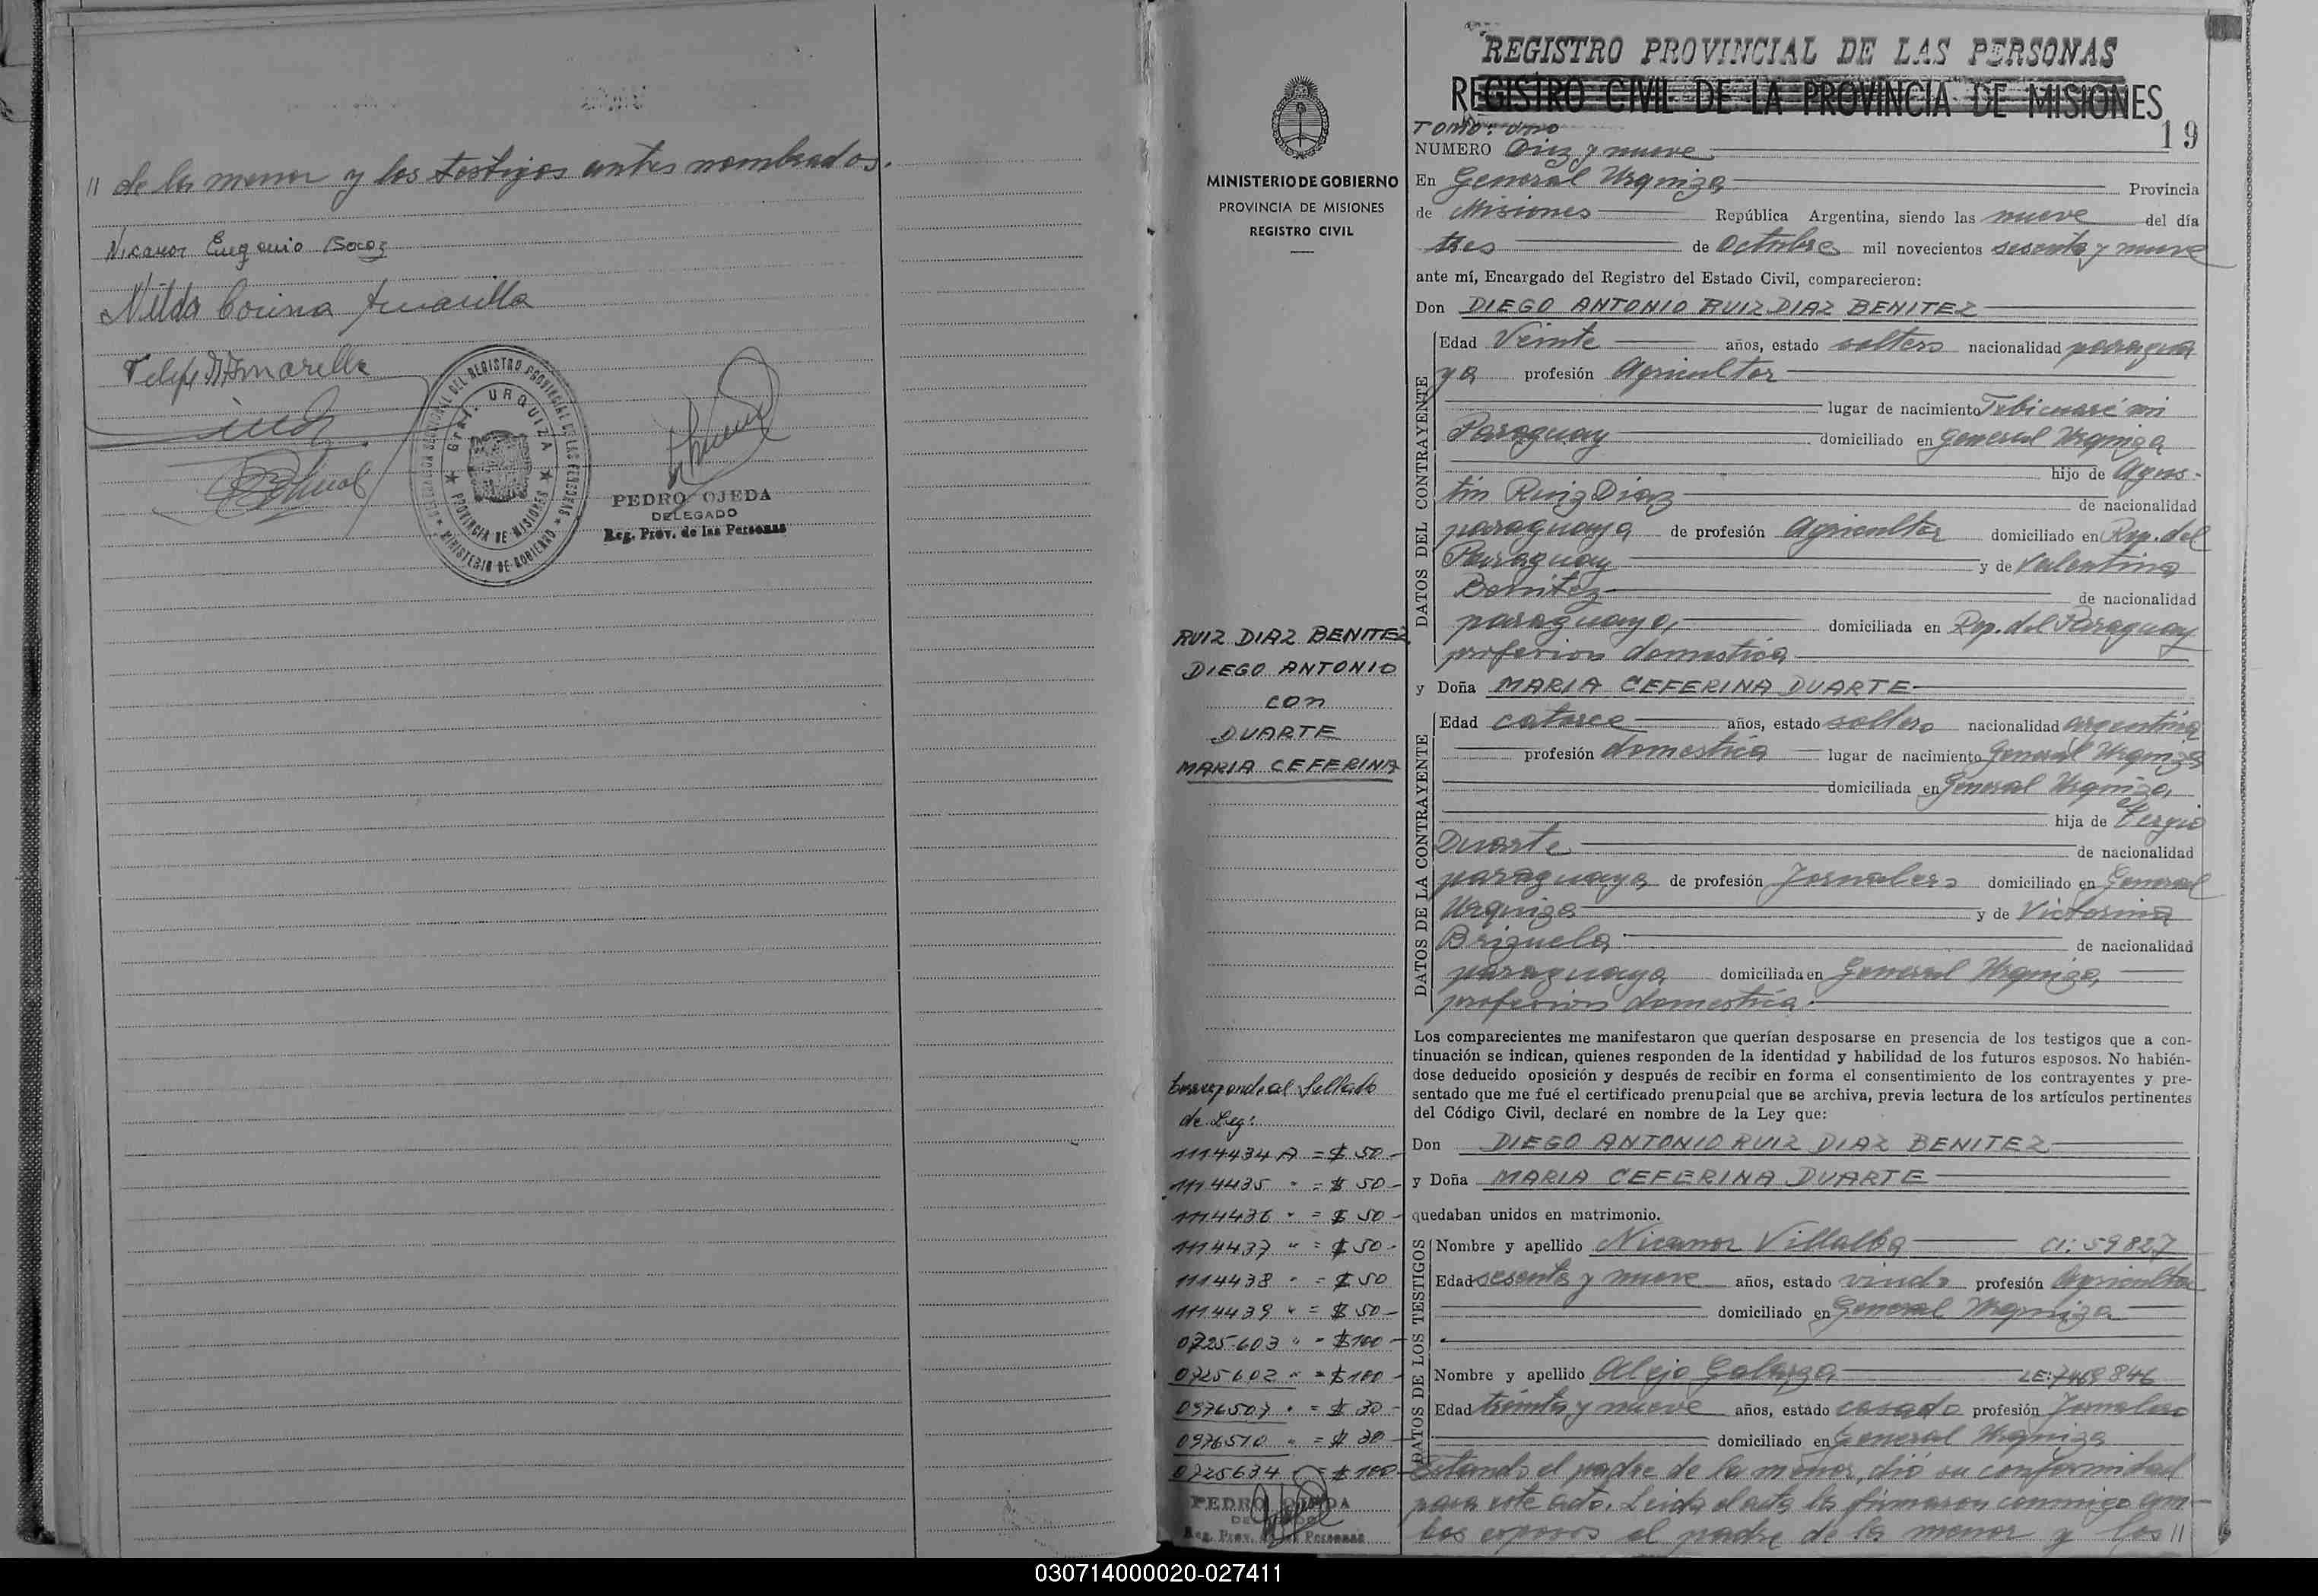 // de la menor y los testigos antes nombrados.
Nicanor Eugenio
Nilda Corina Amarilla
Amarilla
DEL REGISTRO PROVINCIAL DE LAS PERSONAS
Gral. URQUIZA
PROVINCIA DE MISIONES
MINISTERIO DE GOBIERNO
PEDRO OJEDA
DELEGADO
Reg. Prov. de las Personas
MINISTERIO DE GOBIERNO
PROVINCIA DE MISIONES
REGISTRO CIVIL
RUIZ DIAZ BENITEZ
DIEGO ANTONIO
con
DUARTE
MARIA CEFERINA
Corresponde al Sellado
de Ley:
1114434 A = $ 50 -
1114435 " = $ 50 -
1114436 " = $ 50 -
1114437 " = $ 50 -
1114438 " = $ 50
1114439 " = $ 50 -
0725603 " = $ 100 -
0725602 " = $ 100 -
0976507 " = $ 30 -
0976510 " = $ 30 -
0725634 = $ 100 -
PEDRO OJEDA
DELEGADO
Reg. Prov. de las Personas
REGISTRO PROVINCIAL DE LAS PERSONAS
REGISTRO CIVIL DE LA PROVINCIA DE MISIONES
TOMO: uno
19
NUMERO Diez y nueve
En General Urquiza Provincia
de Misiones República Argentina, siendo las nueve del día
tres de Octubre mil novecientos sesenta y nueve
ante mí, Encargado del Registro del Estado Civil, comparecieron:
Don DIEGO ANTONIO RUIZ DIAZ BENITEZ
DATOS DEL CONTRAYENTE
Edad Veinte años, estado soltero nacionalidad paragua
ya profesión Agricultor
lugar de nacimiento Tebicuarí mi
Paraguay domiciliado en General Urquiza
hijo de Agus-
tín Ruiz Diaz de nacionalidad
paraguaya de profesión Agricultor domiciliado en Rep. del
Paraguay y de Valentina
Benitez de nacionalidad
paraguaya, domiciliada en Rep. del Paraguay
profesion domestica
y Doña MARIA CEFERINA DUARTE
DATOS DE LA CONTRAYENTE
Edad catorce años, estado soltera nacionalidad argentina
profesión domestica lugar de nacimiento General Urquiza
domiciliada en General Urquiza,
hija de Sergio
Duarte de nacionalidad
paraguaya de profesión Jornalero domiciliado en General
Urquiza y de Victorina
Brizuela de nacionalidad
paraguaya domiciliada en General Urquiza,
profesion domestica.
Los comparecientes me manifestaron que querían desposarse en presencia de los testigos que a con-
tinuación se indican, quienes responden de la identidad y habilidad de los futuros esposos. No habién-
dose deducido oposición y después de recibir en forma el consentimiento de los contrayentes y pre-
sentado que me fué el certificado prenupcial que se archiva, previa lectura de los artículos pertinentes
del Código Civil, declaré en nombre de la Ley que:
Don DIEGO ANTONIO RUIZ DIAZ BENITEZ
y Doña MARIA CEFERINA DUARTE
quedaban unidos en matrimonio.
DATOS DE LOS TESTIGOS
Nombre y apellido Nicanor Villalba CI: 59827
Edad sesenta y nueve años, estado viudo profesión Agricultor
domiciliado en General Urquiza
Nombre y apellido Alejo Galarza LE: 7469846
Edad treinta y nueve años, estado casado profesión Jornalero
domiciliado en General Urquiza
Estando el padre de la menor, dió su conformidad
para este acto. Leida el acta la firmaron conmigo am-
bos esposos el padre de la menor y los //
030714000020-027411